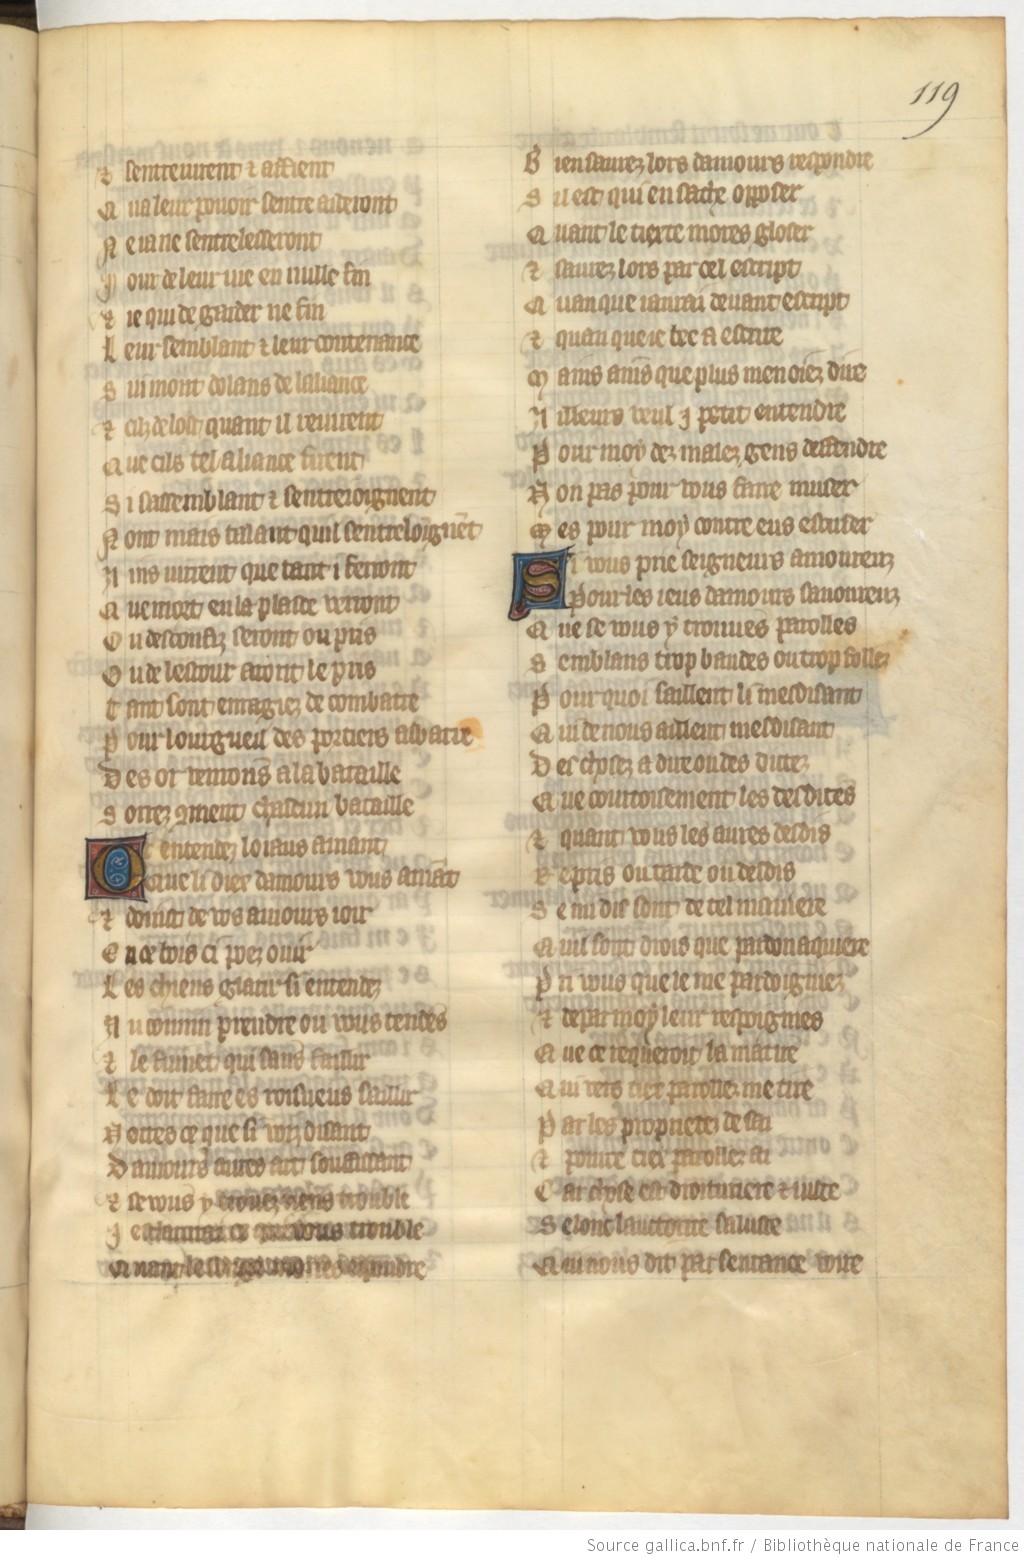 119
Et sentreuirent & affient
Qua leur pouoir sentre aideront
Ne ia ne sentrelesseront
Pour de leur uie en nulle fin
Et ie qui de garder ne fin
Leur semblant & leur contenance
Sui mont dolans de laliance
Et cilz de lost quant il reuirent
Que cils tel aliance firent
Si sassemblant & sentreioignent
Nont mais talant quil sentreloignēt
Ains uirent que tant i feriont
Que mort en la place verront
Ou desconfiz seront ou pris
Ou de lestour aront le pris
Tant sont enragiez de combatre
Pour lourgueil des portiers abatre
Des or venions a la bataille
Sorrez 9ment chascun bataille
Or entendez loiaus amant
Que li diex damours vous amāt
Et doint de vos amours ioir
En ce bois ci poez ouir
Les chiens glatir si entendez
Au connin prendre ou vous tendes
Et le furet qui sans faillir
Le doit faire es roisueus saillir
Notes ce que si voiz disant
Damours aures art souffisant
Et se vous y trouez riens trouble
Je vous trouble
Bien saurez lors damours respondre
Sil est qui en sache opposer
Quant le tierte mores gloser
Et saurez lors par cel escript
Quanque iaurai deuant escript
Et quan que ie bee a escrire
Mais ains que plus men oiez dire
Ailleurs veul j petit entendre
Pour moy dez malez gens deffendre
Non pas pour vous faire muser
Mes pour moy contre eus escuser
Si vous prie seigneurs amoureux
Pour les ieus damours sauoureux
Que se vous y trouues parolles
Semblans trop baudes ou trop folles
Pour quoi saillent li mesdisant
Qui de nous aillent mesdisant
Des chosez a dire ou des dictez
Que courtoisement les desdites
Et quant vous les aures desdis
Repris ou tarde ou desdis
Se mi dit sont de tel maniere
Quil soit drois que pardon aquiere
Pri vous que le me pardoigniez
Et de par moy leur respoignies
Que ce requeroit la matire
Qui vers tiex parollez me tire
Par les proprietez de sai
Et pource tiex parollez ai
Car chose est droituriere & iuste
Selonc lauctorite saluste
Qui nous dit par sentance voire